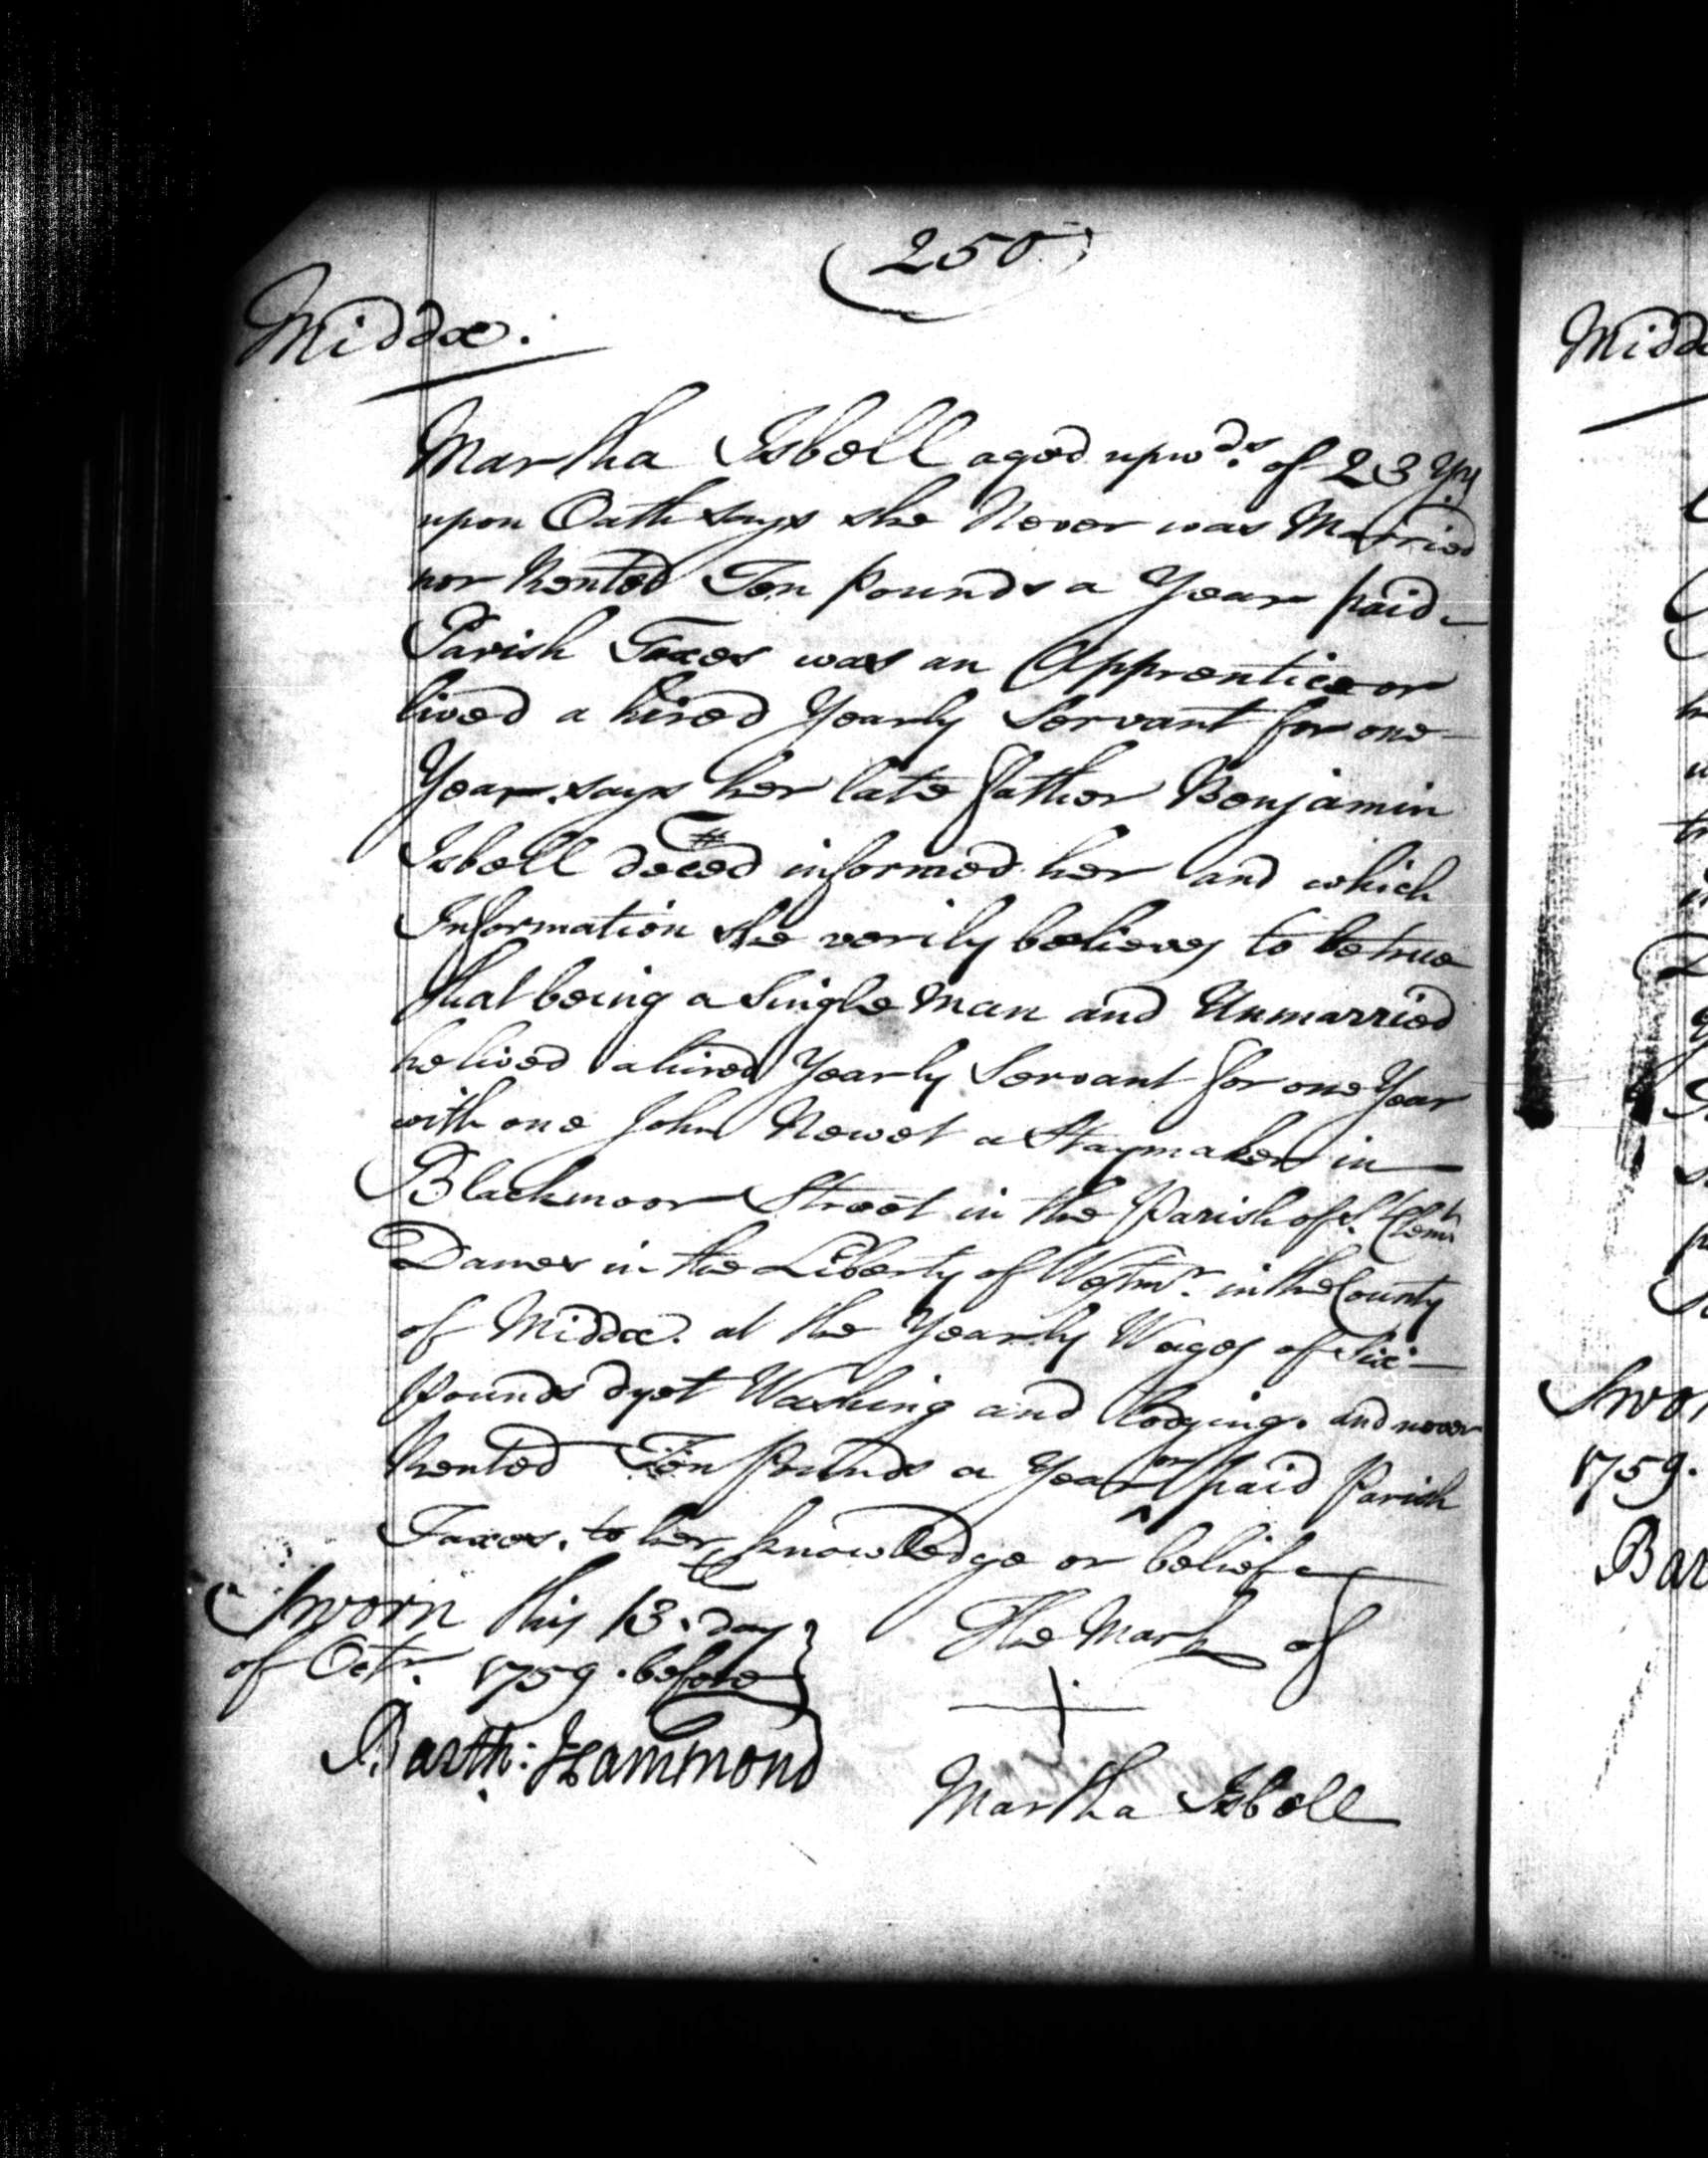 (250)
Middx.
Martha Isbell aged upwds. of 23 Yrs
upon Oath says she Never was Married
nor Rented Ten pounds a Year paid
Parish Taxes was an Apprentice or
lived a hired Yearly Servant for one
Year. says her late father Benjamin
Isbell deced informed her and which
Information she verily believes to be true
that being a Single Man and Unmarried
he lived a hired Yearly Servant for one Year
with one John Newet a Staymaker in
Blackmoor Street in the Parish of St. Clemt
Danes in the Liberty of Westmr. in the County
of Middx. at the Yearly Wages of Six
pounds dyet Washing and Lodging. and never
Rented Ten pounds a Year or paid Parish
Taxes. to her knowledge or belief
Sworn this 13. day
of Octr. 1759. before
Barth: Hammond
The Mark of
Martha Isbell
Midd
Swor
1759.
Bar